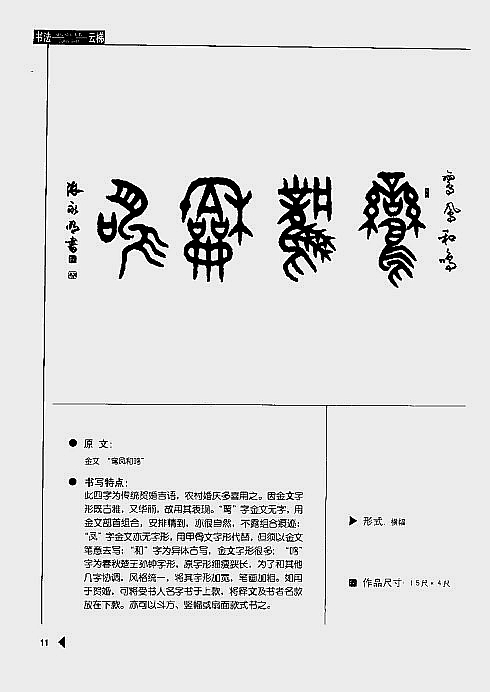 书法 云梯
鸾凤和鸣
鸾凤和鸣
永明书
● 原文：
金文 “鸾凤和鸣”
● 书写特点：
此四字为传统贺婚吉语，农村婚庆多喜用之。因金文字
形既古雅，又华丽，故用其表现。“鸾”字金文无字，用
金文部首组合，安排精到，亦很自然，不露组合痕迹；
“凤”字金文亦无字形，用甲骨文字形代替，但须以金文
笔意去写；“和”字为异体古写，金文字形很多；“鸣”
字为春秋楚王孙钟字形，原字形细瘦狭长，为了和其他
几字协调，风格统一，将其字形加宽，笔画加粗。如用
于贺婚，可将受书人名字书于上款，将释文及书者名款
放在下款。亦可以斗方、竖幅或扇面款式书之。
▶ 形式：横幅
作品尺寸：1.5尺×4尺
11 ◀